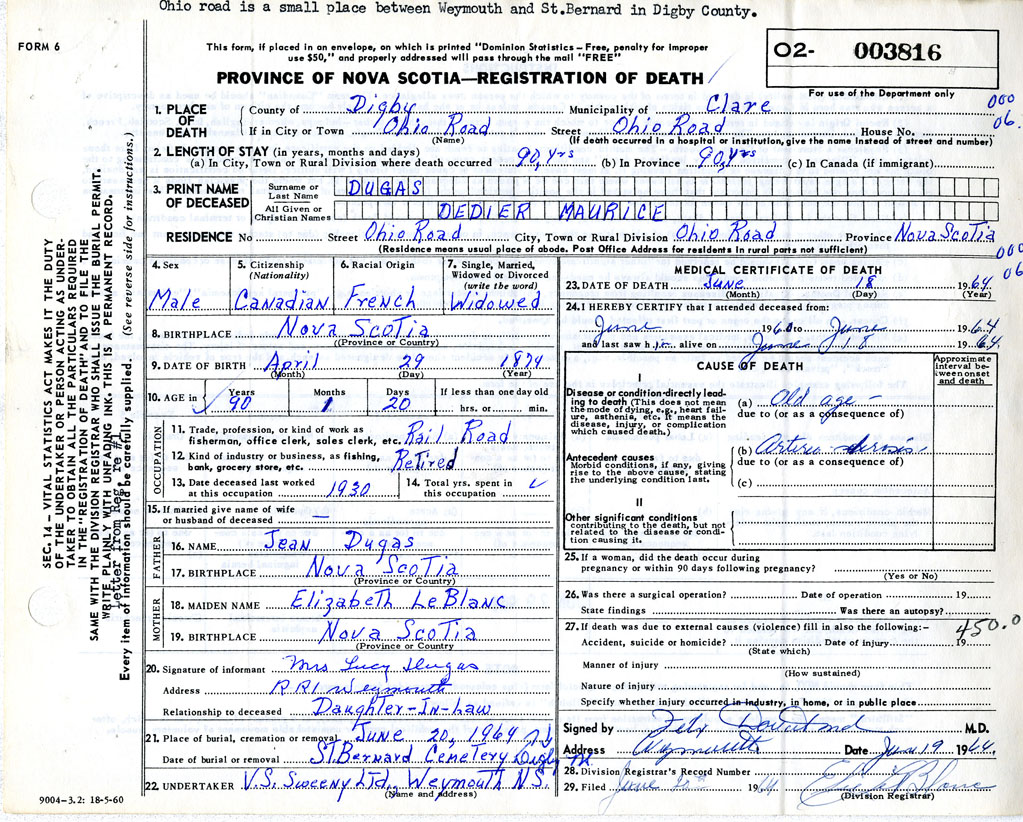 Ohio road is a small place between Weymouth and St.Bernard in Digby County.
FORM 6
This form, if placed in an envelope, on which is printed "Dominion Statistics – Free, penalty for improper
use $50," and properly addressed will pass through the mail "FREE"
O2- 003816
For use of the Department only
PROVINCE OF NOVA SCOTIA—REGISTRATION OF DEATH
000
06.
1. PLACE OF DEATH
County of Digby Municipality of Clare
If in City or Town Ohio Road Street Ohio Road House No.
(Name) (If death occurred in a hospital or institution, give the name instead of street and number)
2. LENGTH OF STAY (in years, months and days)
(a) In City, Town or Rural Division where death occurred 90, Yrs (b) In Province 90, Yrs (c) In Canada (if immigrant)
3. PRINT NAME OF DECEASED
Surname or Last Name DUGAS
All Given or Christian Names DEDIER MAURICE
RESIDENCE No Street Ohio Road City, Town or Rural Division Ohio Road Province Nova Scotia
(Residence means usual place of abode. Post Office Address for residents in rural parts not sufficient)
000
06
4. Sex
Male
5. Citizenship (Nationality)
Canadian
6. Racial Origin
French
7. Single, Married, Widowed or Divorced (write the word)
Widowed
8. BIRTHPLACE Nova Scotia
(Province or Country)
9. DATE OF BIRTH April 29 1874
(Month) (Day) (Year)
10. AGE in Years 90 Months 1 Days 20 If less than one day old
hrs. or min.
OCCUPATION
11. Trade, profession, or kind of work as
fisherman, office clerk, sales clerk, etc. Rail Road
12. Kind of industry or business, as fishing,
bank, grocery store, etc. Retired
13. Date deceased last worked
at this occupation 1930
14. Total yrs. spent in
this occupation
15. If married give name of wife
or husband of deceased —
FATHER
16. NAME Jean Dugas
17. BIRTHPLACE Nova Scotia
(Province or Country)
MOTHER
18. MAIDEN NAME Elizabeth LeBlanc
19. BIRTHPLACE Nova Scotia
(Province or Country)
20. Signature of informant Mrs Lucy Dugas
Address RR1 Weymouth
Relationship to deceased Daughter-In-Law
21. Place of burial, cremation or removal June 20, 1964
Date of burial or removal St Bernard Cemetery Digby
22. UNDERTAKER V.S. Sweeny Ltd., Weymouth N.S.
(Name and address)
MEDICAL CERTIFICATE OF DEATH
23. DATE OF DEATH June 18 1964
(Month) (Day) (Year)
24. I HEREBY CERTIFY that I attended deceased from:
June 1960 to June 1964
and last saw him alive on June 18 1964
CAUSE OF DEATH
Approximate interval between onset and death
I
Disease or condition directly leading to death (This does not mean the mode of dying, e.g., heart failure, asthenia, etc. It means the disease, injury, or complication which caused death.)
(a) Old age –
due to (or as a consequence of)
Antecedent causes
Morbid conditions, if any, giving rise to the above cause, stating the underlying condition last.
(b)
due to (or as a consequence of)
(c)
II
Other significant conditions
contributing to the death, but not related to the disease or condition causing it.
25. If a woman, did the death occur during
pregnancy or within 90 days following pregnancy?
(Yes or No)
26. Was there a surgical operation? Date of operation 19
State findings Was there an autopsy?
27. If death was due to external causes (violence) fill in also the following:-
450.0
Accident, suicide or homicide? Date of injury 19
(State which)
Manner of injury
(How sustained)
Nature of injury
Specify whether injury occurred in industry, in home, or in public place
Signed by M.D.
Address Weymouth Date June 19 1964
28. Division Registrar's Record Number
29. Filed June 20th 1964
(Division Registrar)
SEC. 14 – VITAL STATISTICS ACT MAKES IT THE DUTY
OF THE UNDERTAKER OR PERSON ACTING AS UNDER-
TAKER TO OBTAIN ALL THE PARTICULARS REQUIRED
IN THE "REGISTRATION OF DEATH" AND TO FILE THE
SAME WITH THE DIVISION REGISTRAR WHO SHALL ISSUE THE BURIAL PERMIT.
WRITE PLAINLY WITH UNFADING INK. THIS IS A PERMANENT RECORD.
Letter from Reg. re #1
Every item of information should be carefully supplied. (See reverse side for instructions.)
9004–3.2: 18-5-60